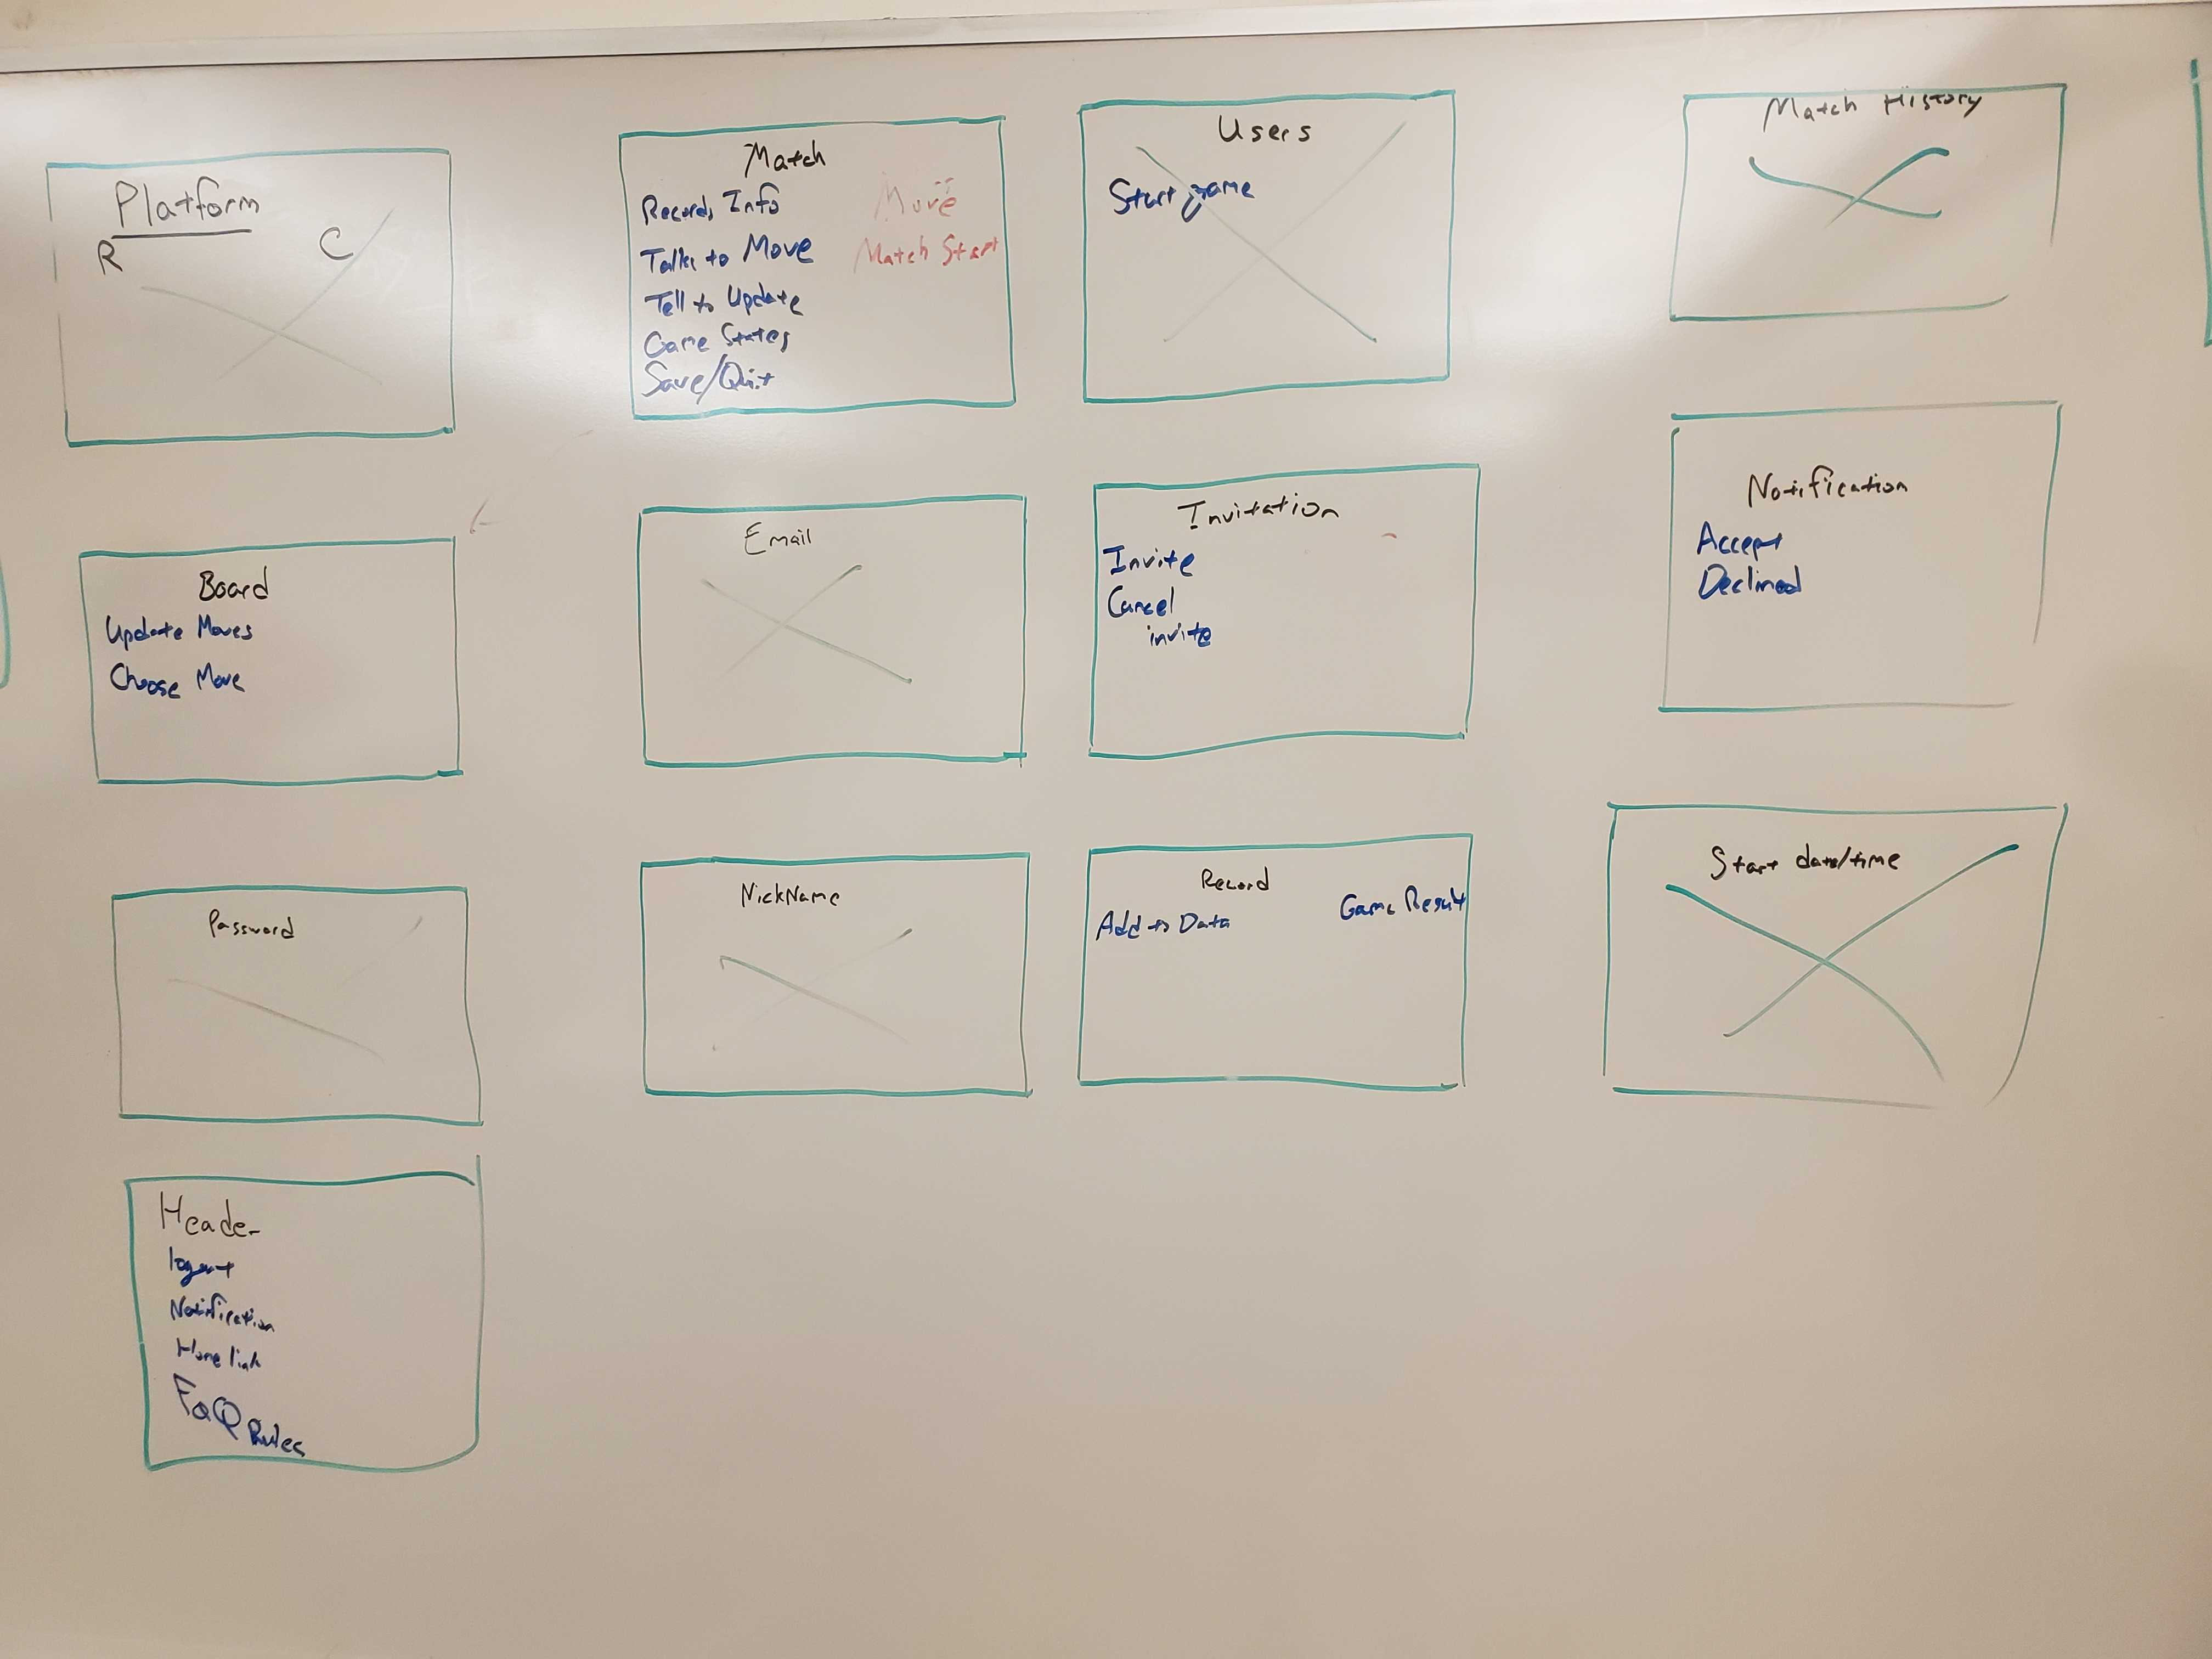 Platform
R C
Match
Records Info
Talks to Move
Tell to Update
Game States
Save/Quit
Move
Match Start
Users
Start game
Match History
Board
Update Moves
Choose Move
Email
Invitation
Invite
Cancel
invite
Notification
Accept
Declined
Password
NickName
Record
Add to Data
Game Result
Start date/time
Header
logout
Notification
Home link
FaQ Rules